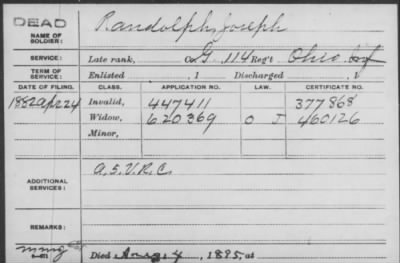 DEAD
NAME OF SOLDIER: Randolph, Joseph
SERVICE: Late rank, Co G. 114 Reg't Ohio Inf
TERM OF SERVICE: Enlisted , 1 Discharged , 1
DATE OF FILING. CLASS. APPLICATION NO. LAW. CERTIFICATE NO.
1882 Apr 24 Invalid, 447411 377868
Widow, 620369 O J 460126
Minor,
ADDITIONAL SERVICES: A.S.V.R.C.
REMARKS:
Died Aug 4, 1895, at